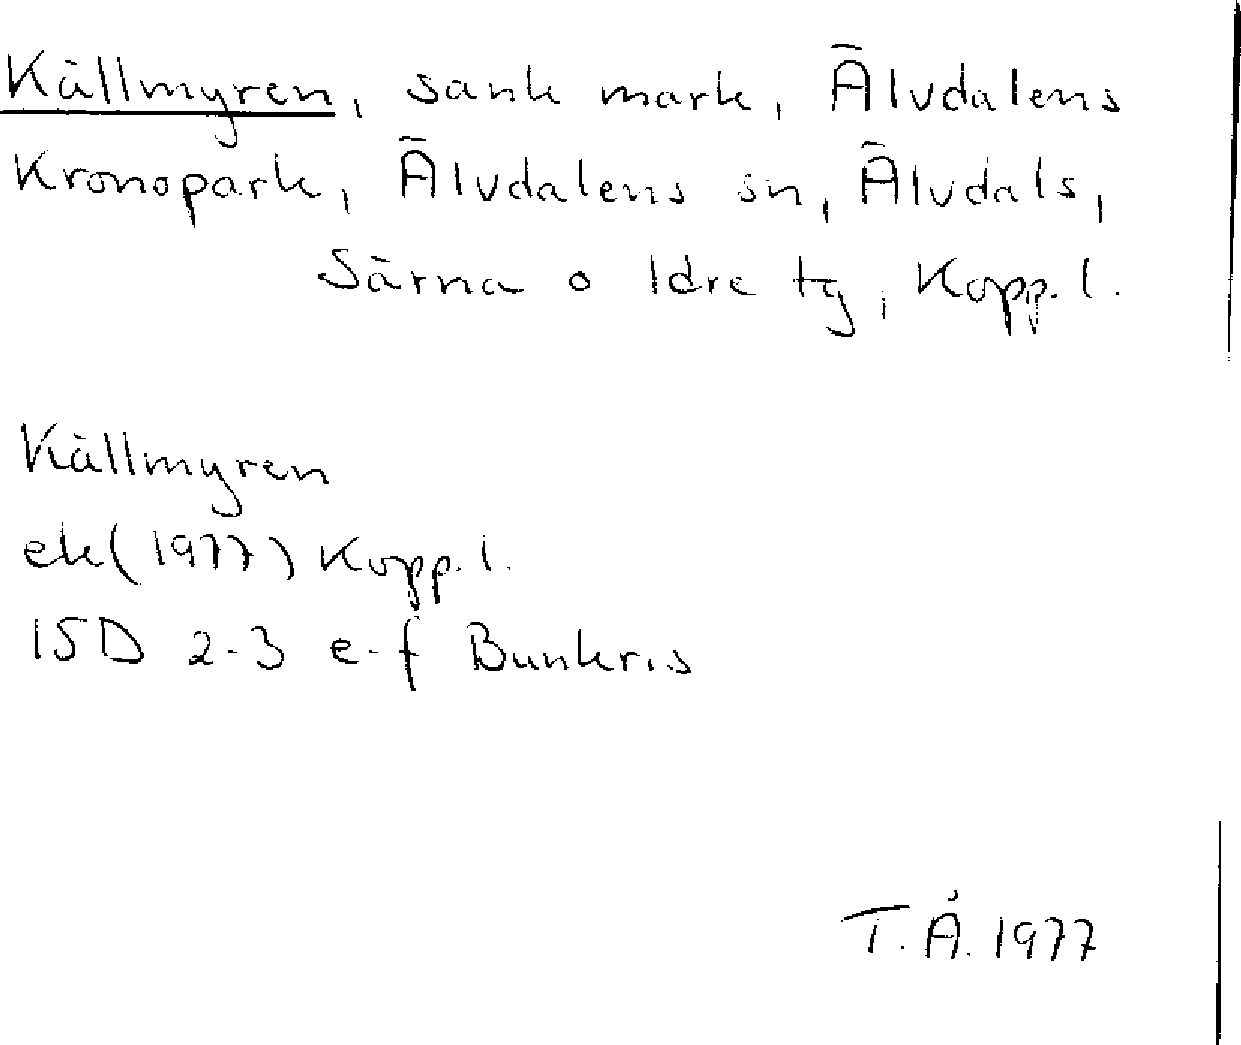 Källmyren, sank mark, Älvdalens
Kronopark, Älvdalens sn, Älvdals,
Särna o Idre tg, Kopp. l.
Källmyren
ek (1977) Kopp. l.
15D 2-3 e-f Bunkris
T.Å. 1977